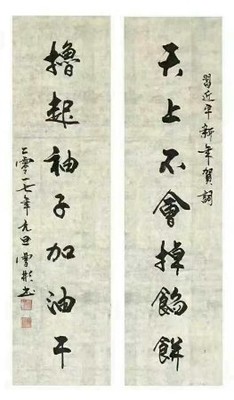 習近平新年賀詞
天上不會掉餡餅
擼起袖子加油干
二零一七年元旦